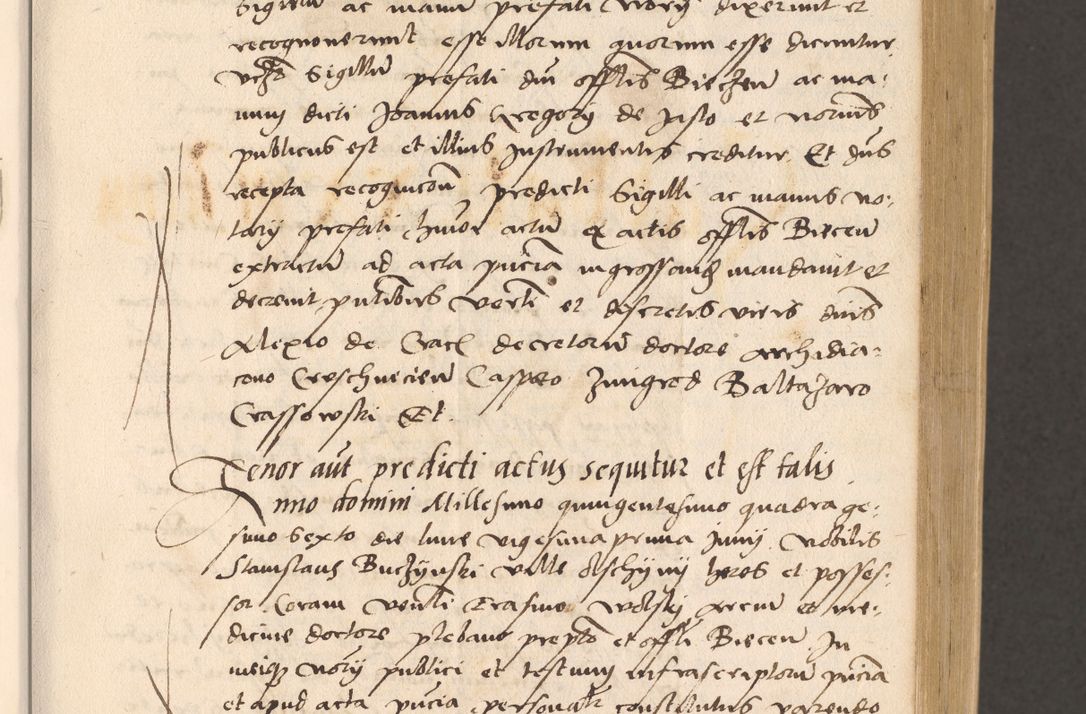 Sigillum ac manum prefati Nory dixerunt et
recognoverunt esse illorum quorum esse dicuntur
Sigillum prefati dni offlis Biecen ac ma-
num dicti Joannis Gregorii de Justo et Norius
publicus est et illius Instrumentis creditur Et dns
recepta recognicoe predicti Sigilli ac manus no-
tary prefati actum ex actis offlis Biecen
extractum ad acta pncia ingrossand mandavit et
decrevit pntibus et discretis viris dnis
Alexio de Crac decretorum doctore Archidia-
cono Casparo Jungred Baltazaro
Crassowski Et
Tenor aut predicti actus sequitur et est talis
Anno domini Millesimo quingentesimo quadrage-
simo Sexto die lune vigesima prima Junij Nobilis
Stanislaus Buczynski ville Olschyny heres et posses-
sor Coram Venli Erasmo Wolsky Arcium et me-
dicine doctore plebano prepto et offli Biecen In
meiqz Nory publici et testium infrascriptorum pncia
et apud acta pncia personalr constitutus parendo